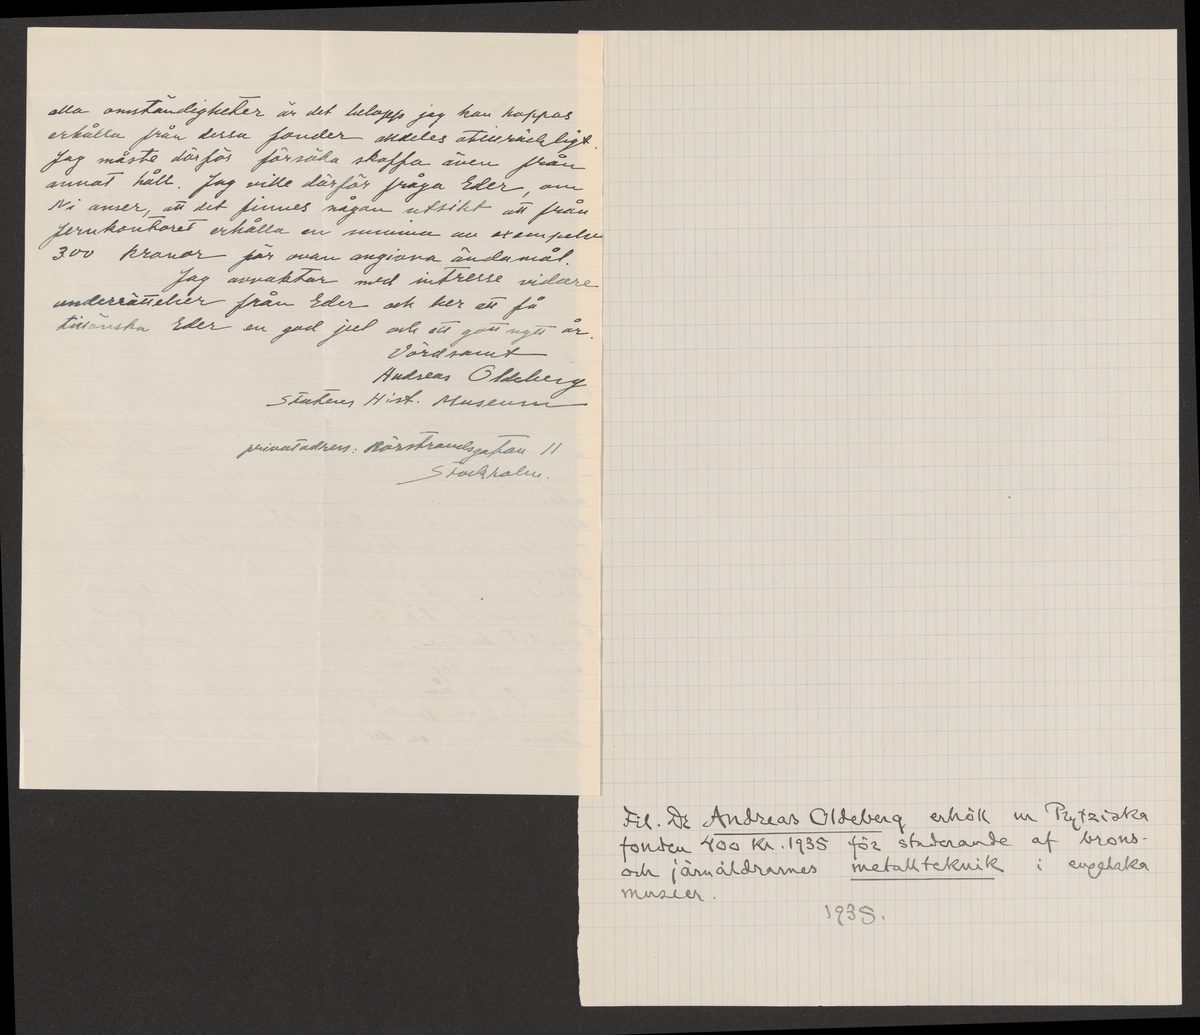 alla omständigheter är det belopp jag kan hoppas
erhålla från dessa fonder alldeles otillräckligt.
Jag måste därför försöka skaffa även från
annat håll. Jag ville därför fråga Eder, om
Ni anser, att det finnes någon utsikt att från
Jernkontoret erhålla en summa av exempelvis
300 kronor för ovan angivna ändamål.
Jag avvaktar med intresse vidare
underrättelser från Eder och ber att få
tillönska Eder en god jul och ett gott nytt år.
Vördsamt
Andreas Oldeberg
Statens Hist. Museum
privatadress: Rörstrandsgatan 11
Stockholm.
Fil. Dr Andreas Oldeberg erhöll ur Prytziska
fonden 400 Kr. 1935 för studerande af brons-
och järnåldrarnes metallteknik i engelska
museer.
1935.